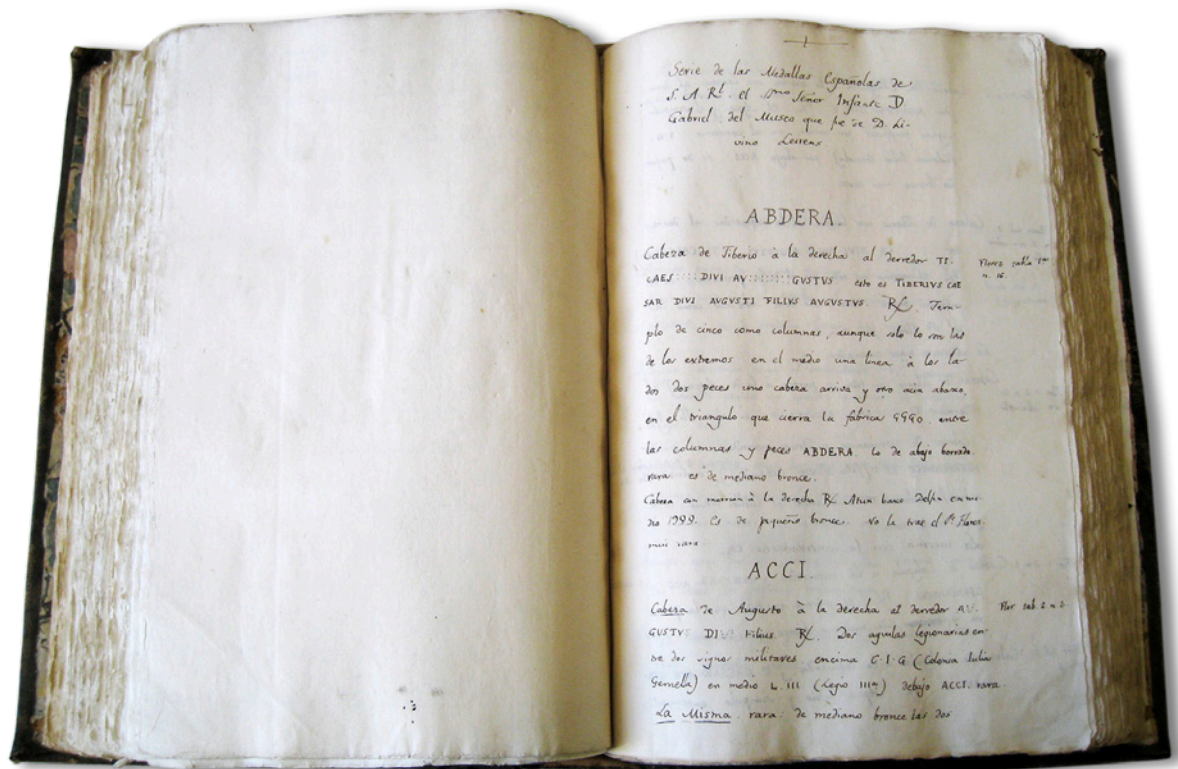 1
Serie de las Medallas Españolas de
S. A. Rl. el Smo Señor Infante D.
Gabriel del Museo que fue de D. Li-
vino Leirens
ABDERA.
Cabeza de Tiberio à la derecha al derredor TI.
CAES::::DIVI AV::::::::GVSTVS esto es TIBERIVS CAE
SAR DIVI AVGVSTI FILIVS AVGVSTVS. R/. Tem-
plo de cinco como columnas, aunque solo lo son las
de los extremos en el medio una linea à los la-
dos dos peces uno cabeza arriva y otro acia abaxo,
en el triangulo que cierra la fabrica entre
las columnas y peces ABDERA. lo de abajo borrado.
rara. es de mediano bronce.
Cabeza con à la derecha R/. Atun baxo Delfin en me-
dio Es de pequeño bronce. No la trae el Pe. Florez.
mui rara
ACCI.
Cabeza de Augusto à la derecha al derredor AV.
GVSTVS DIVI Filius. R/. Dos aguilas legionarias en-
tre dos signos militares, encima C.I.G (Colonia Iulia
Gemella) en medio L.III (Legio IIIa) debajo ACCI. rara.
La Misma. rara. de mediano bronce las dos
Florez tabla 1a
n. 16.
Flor tab. 2 n 2